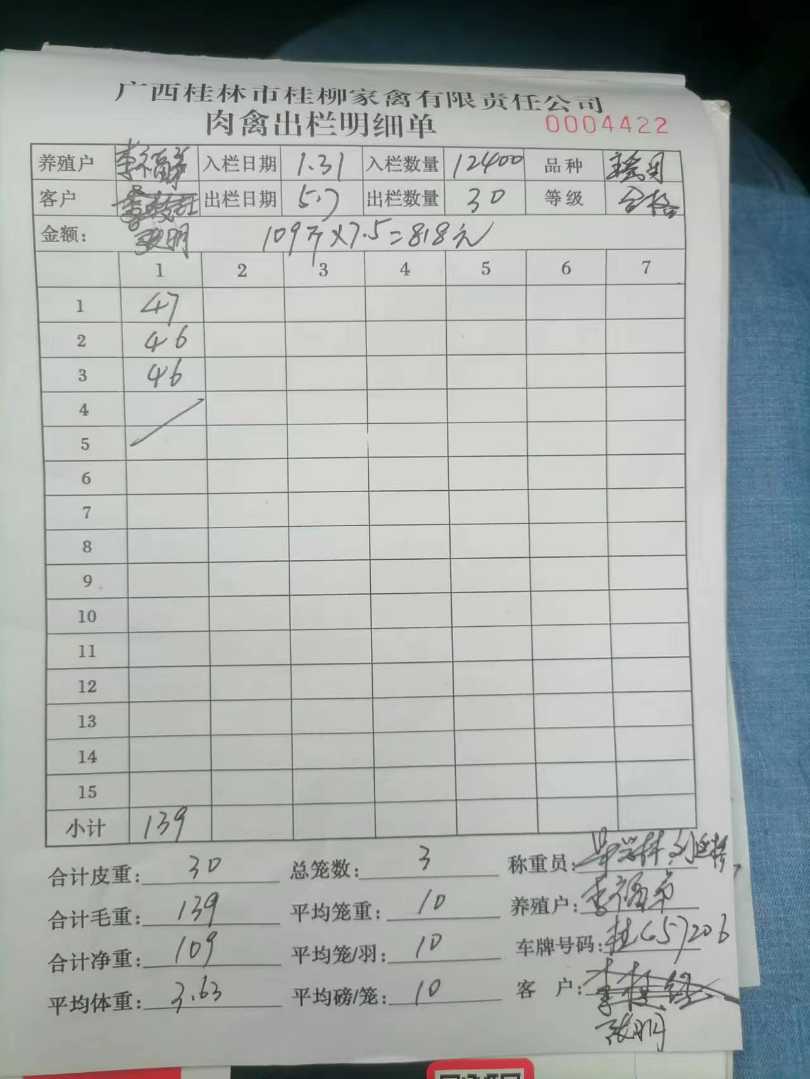 广西桂林市桂柳家禽有限责任公司
肉禽出栏明细单 0004422
养殖户 入栏日期 1.31 入栏数量 12400 品种
客户 出栏日期 5.7 出栏数量 30 等级 合格
金额: 张明 109斤×7.5=818元
1 2 3 4 5 6 7
1 47
2 46
3 46
4
5
6
7
8
9
10
11
12
13
14
15
小计 139
合计皮重: 30 总笼数: 3 称重员:
合计毛重: 139 平均笼重: 10 养殖户:
合计净重: 109 平均笼/羽: 10 车牌号码: 桂C57206
平均体重: 3.63 平均磅/笼: 10 客户:
张明